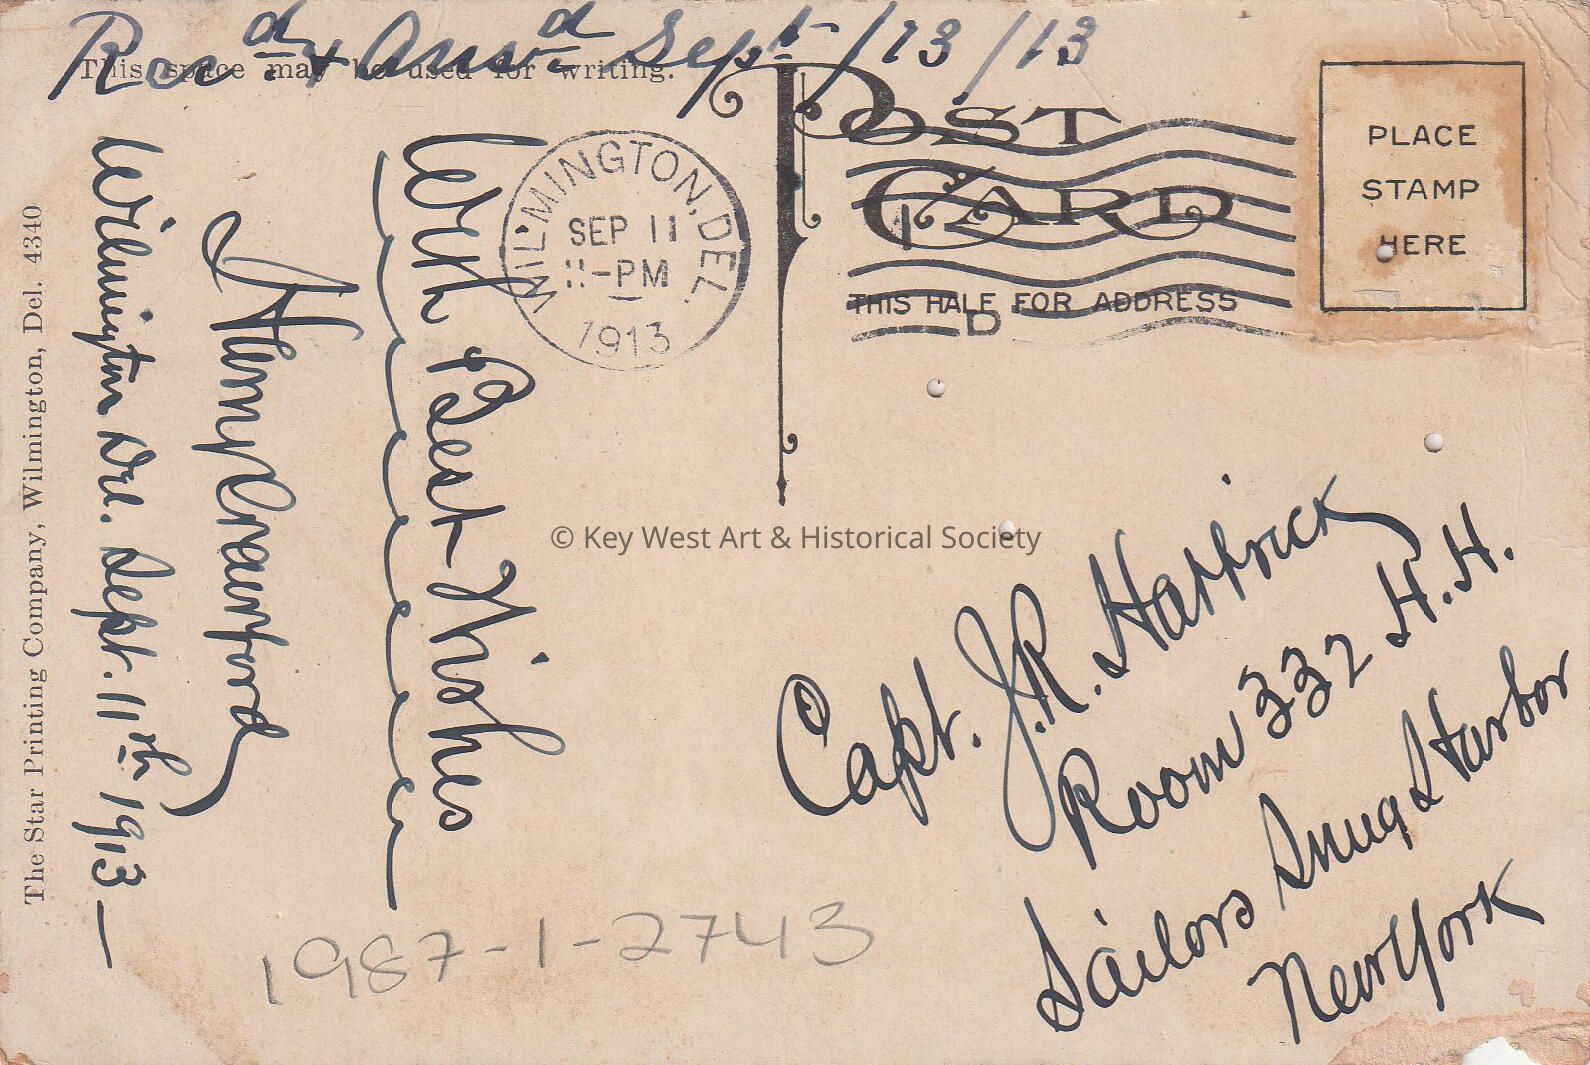 Rec'd & Ans'd Sept/13/13
This space may be used for writing.
POST CARD
PLACE
STAMP
HERE
THIS HALF FOR ADDRESS
WILMINGTON, DEL.
SEP 11
11-PM
1913
1
D
With Best Wishes
Henry Crawford
Wilmington Del. Sept. 11th 1913—
The Star Printing Company, Wilmington, Del. 4340
© Key West Art & Historical Society
Capt. J.R. Hattrick
Room 332 H.H.
Sailors Snug Harbor
New York
1987-1-2743